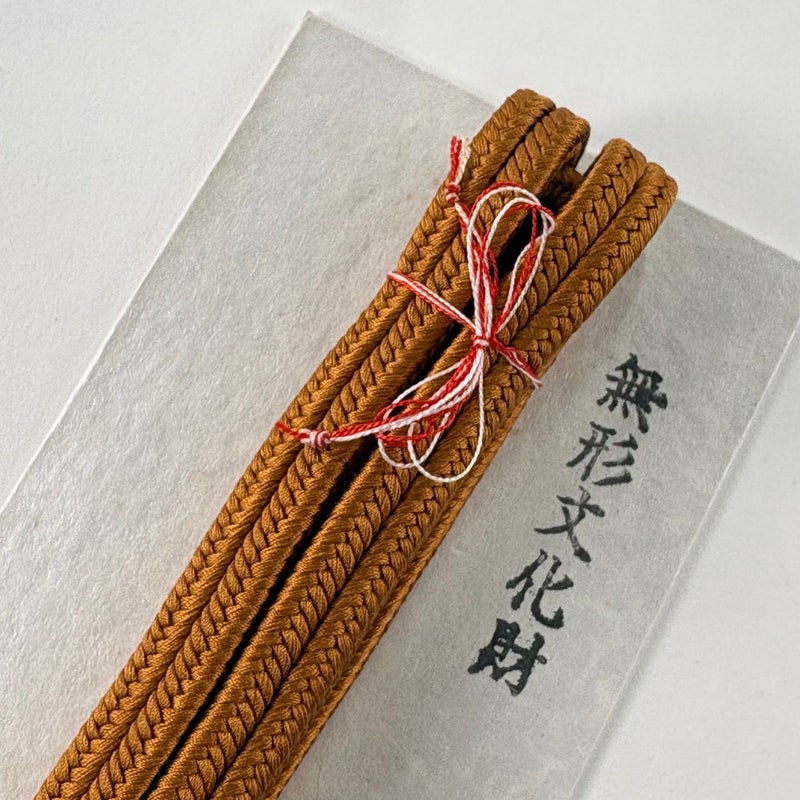 無形文化財